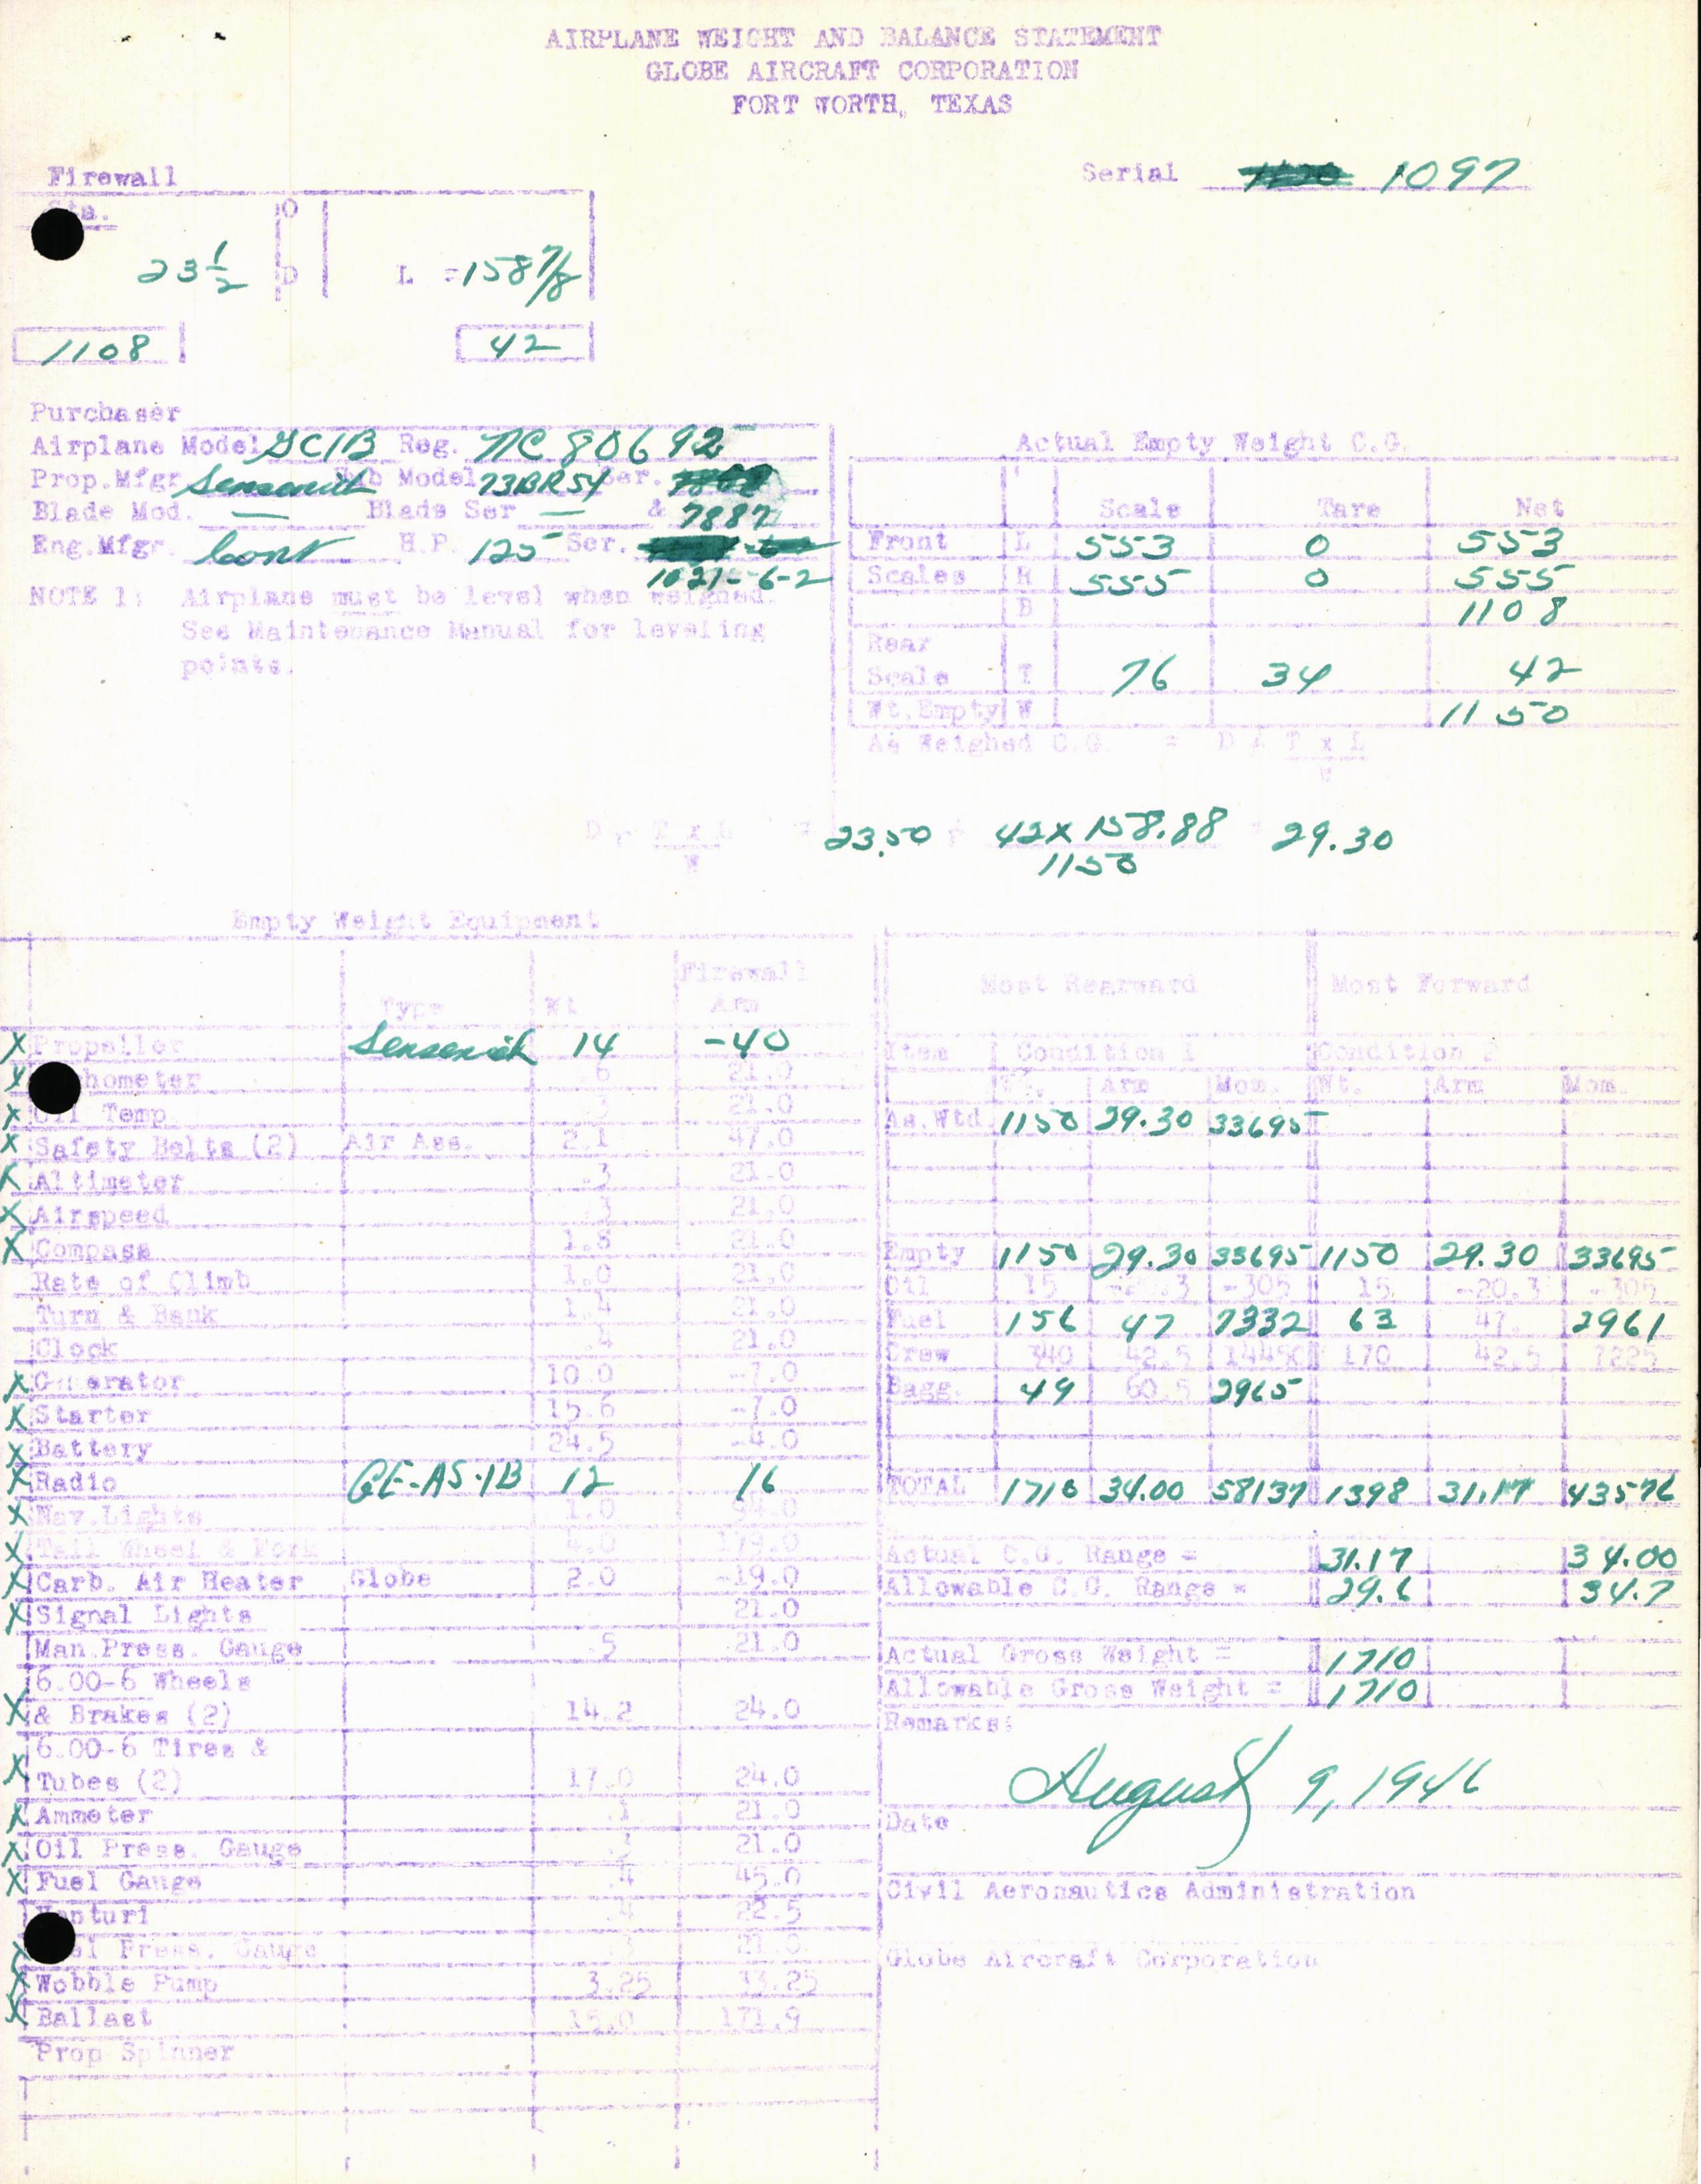 AIRPLANE WEIGHT AND BALANCE STATEMENT
GLOBE AIRCRAFT CORPORATION
FORT WORTH, TEXAS
Firewall
Serial 1097
Sta.
O
23 1/2 D L = 158 7/8
1108 42
Purchaser
Airplane Model GC1B Reg. NC 80692
Prop.Mfgr Sensenich Hub Model 73BR54 Ser.
Blade Mod. — Blade Ser — & 7887
Eng.Mfgr. Cont H.P. 125 Ser.
1021-6-2
NOTE 1: Airplane must be level when weighed.
See Maintenance Manual for leveling
points.
Actual Empty Weight C.G.
Scale Tare Net
Front L 553 0 553
Scales R 555 0 555
B 1108
Rear
Scale T 76 34 42
Wt.Empty W 1150
As Weighed C.G. = D + T x L
W
D + T x L = 23.50 + 42 x 158.88 = 29.30
W 1150
Empty Weight Equipment
Type Wt Firewall Arm
X Propeller Sensenich 14 -40
X hometer .6 21.0
X Oil Temp .3 21.0
X Safety Belts (2) Air Ass. 2.1 47.0
X Altimeter .3 21.0
X Airspeed .3 21.0
X Compass 1.8 21.0
Rate of Climb 1.0 21.0
Turn & Bank 1.4 21.0
Clock .4 21.0
X Generator 10.0 -7.0
X Starter 15.6 -7.0
X Battery 24.5 -4.0
X Radio GE-AS-1B 12 16
X Nav.Lights 1.0
X Tail Wheel & Fork 4.0 179.0
X Carb. Air Heater Globe 2.0 -19.0
X Signal Lights 21.0
Man.Press. Gauge .5 21.0
6.00-6 Wheels
X & Brakes (2) 14.2 24.0
6.00-6 Tires &
X Tubes (2) 17.0 24.0
X Ammeter .3 21.0
X Oil Press. Gauge .3 21.0
X Fuel Gauge .4 45.0
Venturi .4 22.5
X el Press. Gauge .3 21.0
X Wobble Pump 3.25 33.25
X Ballast 15.0 171.9
Prop Spinner
Most Rearward Most Forward
Item Condition I Condition 2
Wt. Arm Mom. Wt. Arm Mom.
As.Wtd 1150 29.30 33695
Empty 1150 29.30 33695 1150 29.30 33695
Oil 15 -20.3 -305 15 -20.3 -305
Fuel 156 47 7332 63 47. 2961
Crew 340 42.5 14450 170 42.5 7225
Bagg. 49 60.5 2965
TOTAL 1710 34.00 58137 1398 31.17 43576
Actual C.G. Range = 31.17 34.00
Allowable C.G. Range = 29.6 34.7
Actual Gross Weight = 1710
Allowable Gross Weight = 1710
Remarks:
August 9, 1946
Date
Civil Aeronautics Administration
Globe Aircraft Corporation